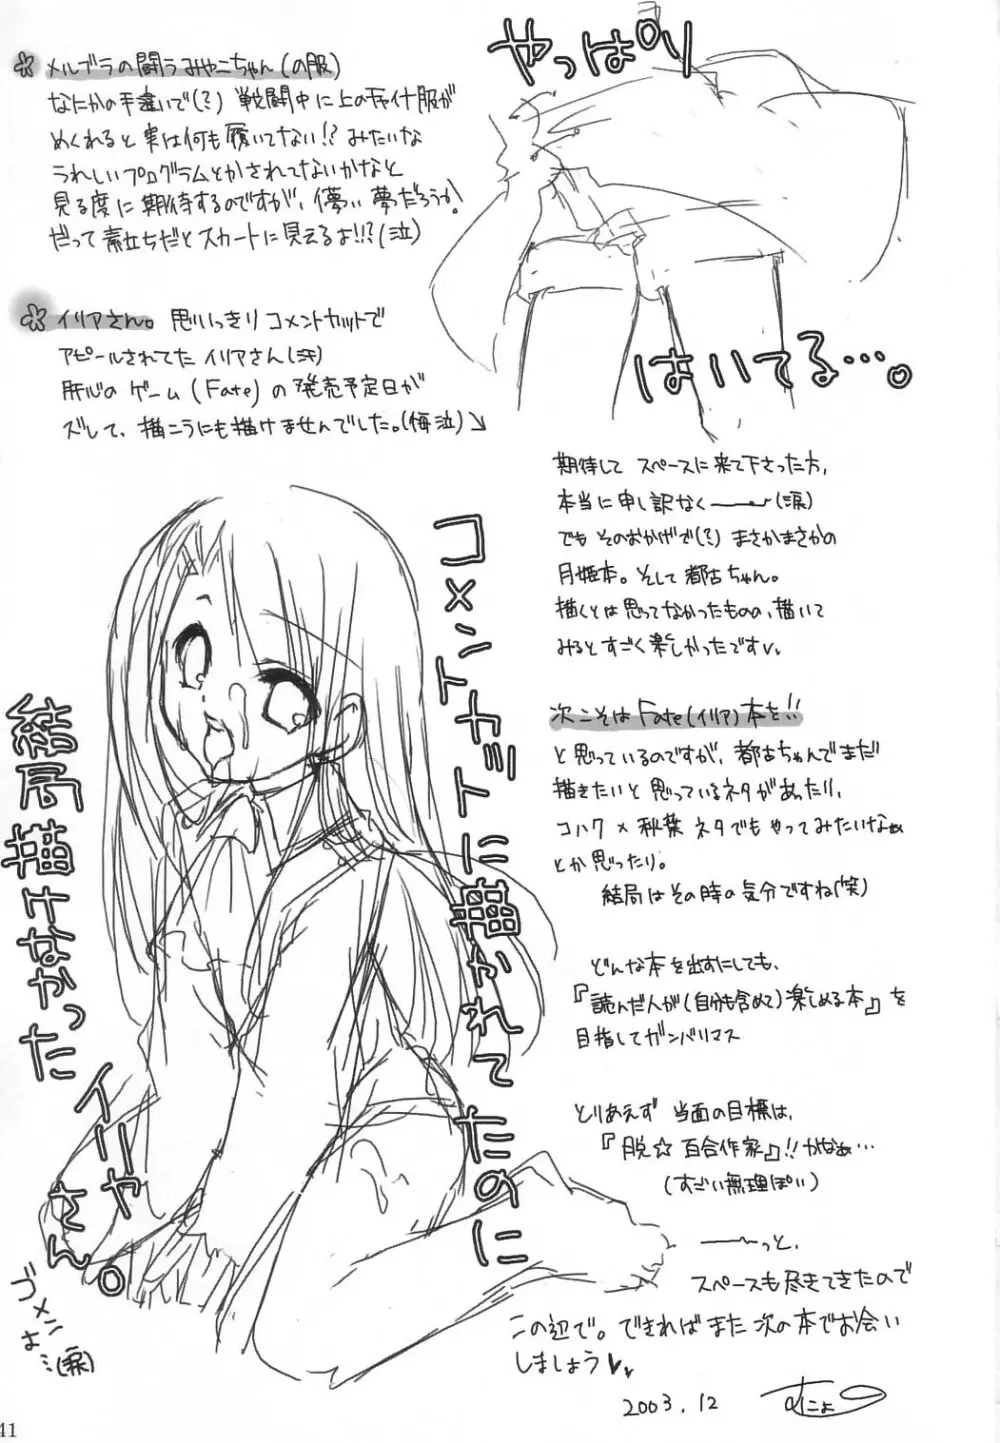 メルブラの闘うみやこちゃん(の服)
なにかの手違いで(?) 戦闘中に上のチャイナ服が
めくれると実は何も履いてない!? みたいな
うれしいプログラムとかされてないかなと
見る度に期待するのですが、儚い夢だろうか!
だって素立ちだとスカートに見えるよ!!?(泣)
やっぱり
はいてる…。
イリアさん。思いっきりコメントカットで
アピールされてたイリアさん(汗)
肝心のゲーム(Fate)の発売予定日が
ズレて、描こうにも描けませんでした。(悔泣)↘
コメントカットに描かれてたのに
結局描けなかった
イリヤさん。
ゴメンよ…(涙)
期待してスペースに来て下さった方、
本当に申し訳なく——(涙)
でもそのおかげで(?)まさかまさかの
月姫本。そして都古ちゃん。
描くとは思ってなかったものの、描いて
みるとすごく楽しかったです。
次こそはFate(イリア)本を!!
と思っているのですが、都古ちゃんでまだ
描きたいと思っているネタがあったり、
コハク×秋葉ネタでもやってみたいなぁ
とか思ったり。
結局はその時の気分ですね(笑)
どんな本を出すにしても、
『読んだ人が(自分も含めて)楽しめる本』を
目指してガンバリマス
とりあえず当面の目標は、
『脱☆百合作家』!!かなぁ…
(すごい無理ぽい)
——っと、
スペースも尽きてきたので
この辺で。できればまた次の本でお会い
しましょう♥
2003.12
41